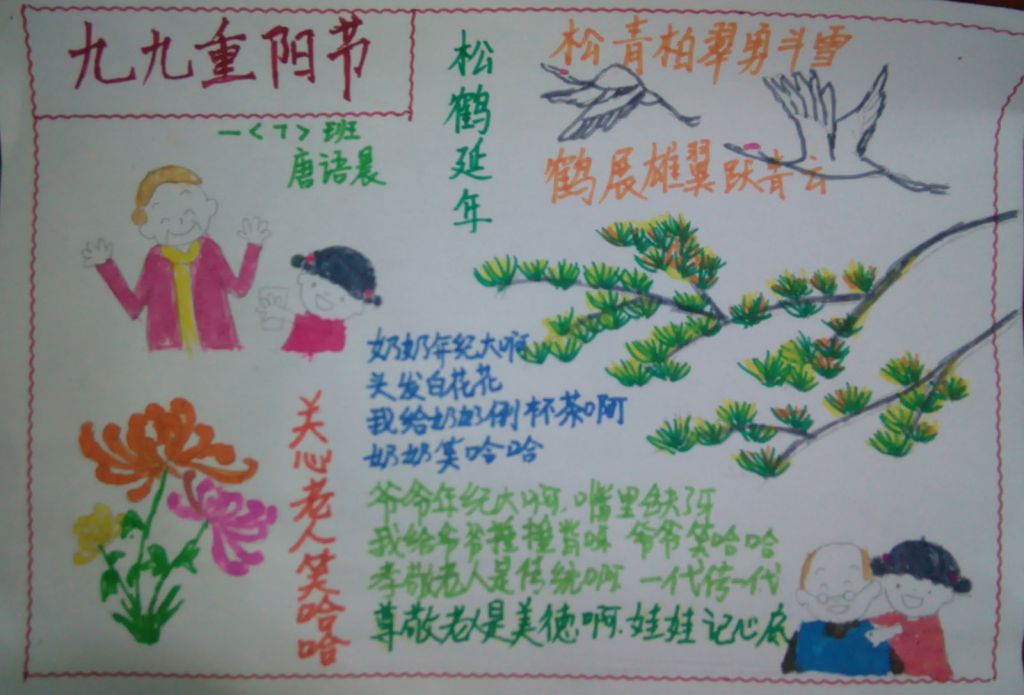 九九重阳节
一<7>班
唐语晨
松鹤延年
松青柏翠勇斗雪
鹤展雄翼跃青云
奶奶年纪大啊
头发白花花
我给奶奶倒杯茶啊
奶奶笑哈哈
关心老人笑哈哈
爷爷年纪大啊.嘴里缺了牙
我给爷爷捶捶背啊 爷爷笑哈哈
孝敬老人是传统啊 一代传一代
尊敬老人是美德啊.娃娃记心底